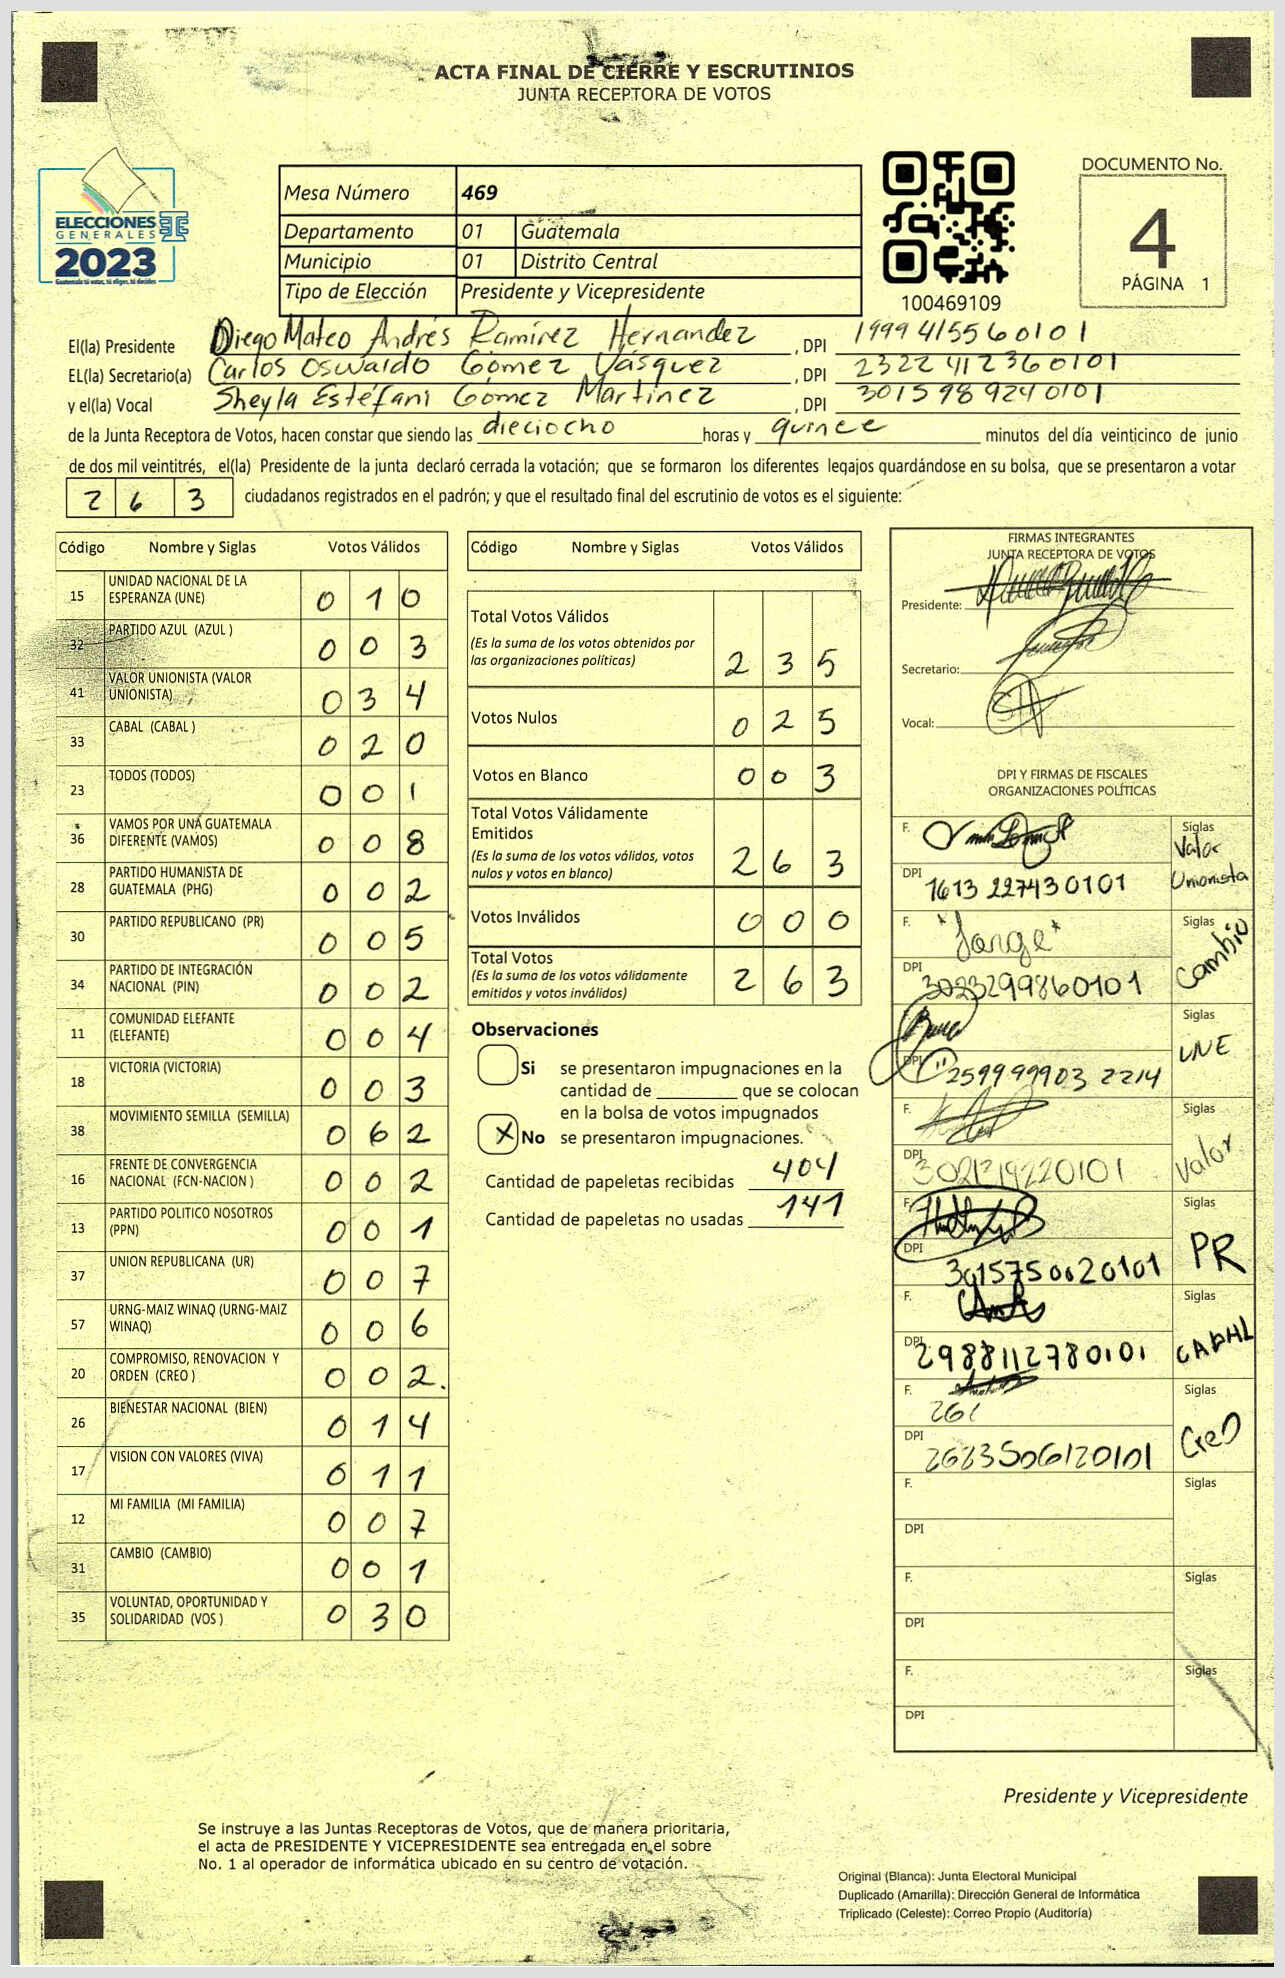 ACTA FINAL DE CIERRE Y ESCRUTINIOS
JUNTA RECEPTORA DE VOTOS
ELECCIONES
GENERALES
2023
Guatemala tú votas, tú eliges, tú decides
Mesa Número 469
Departamento 01 Guatemala
Municipio 01 Distrito Central
Tipo de Elección Presidente y Vicepresidente
100469109
DOCUMENTO No.
4
PÁGINA 1
El(la) Presidente Diego Mateo Andrés Ramírez Hernandez , DPI 1999415560101
EL(la) Secretario(a) Carlos Oswaldo Gómez Vásquez , DPI 2322412360101
y el(la) Vocal Sheyla Estéfani Gómez Martinez , DPI 3015989240101
de la Junta Receptora de Votos, hacen constar que siendo las dieciocho horas y quince minutos del día veinticinco de junio
de dos mil veintitrés, el(la) Presidente de la junta declaró cerrada la votación; que se formaron los diferentes legajos guardándose en su bolsa, que se presentaron a votar
263 ciudadanos registrados en el padrón; y que el resultado final del escrutinio de votos es el siguiente:
Código Nombre y Siglas Votos Válidos
15 UNIDAD NACIONAL DE LA ESPERANZA (UNE) 010
32 PARTIDO AZUL (AZUL ) 003
41 VALOR UNIONISTA (VALOR UNIONISTA) 034
33 CABAL (CABAL ) 020
23 TODOS (TODOS) 001
36 VAMOS POR UNA GUATEMALA DIFERENTE (VAMOS) 008
28 PARTIDO HUMANISTA DE GUATEMALA (PHG) 002
30 PARTIDO REPUBLICANO (PR) 005
34 PARTIDO DE INTEGRACIÓN NACIONAL (PIN) 002
11 COMUNIDAD ELEFANTE (ELEFANTE) 004
18 VICTORIA (VICTORIA) 003
38 MOVIMIENTO SEMILLA (SEMILLA) 062
16 FRENTE DE CONVERGENCIA NACIONAL (FCN-NACION ) 002
13 PARTIDO POLITICO NOSOTROS (PPN) 001
37 UNION REPUBLICANA (UR) 007
57 URNG-MAIZ WINAQ (URNG-MAIZ WINAQ) 006
20 COMPROMISO, RENOVACION Y ORDEN (CREO ) 002.
26 BIENESTAR NACIONAL (BIEN) 014
17 VISION CON VALORES (VIVA) 011
12 MI FAMILIA (MI FAMILIA) 007
31 CAMBIO (CAMBIO) 001
35 VOLUNTAD, OPORTUNIDAD Y SOLIDARIDAD (VOS ) 030
Código Nombre y Siglas Votos Válidos
Total Votos Válidos
(Es la suma de los votos obtenidos por
las organizaciones políticas) 235
Votos Nulos 025
Votos en Blanco 003
Total Votos Válidamente
Emitidos
(Es la suma de los votos válidos, votos
nulos y votos en blanco) 263
Votos Inválidos 000
Total Votos
(Es la suma de los votos válidamente
emitidos y votos inválidos) 263
Observaciones
Si se presentaron impugnaciones en la
cantidad de ________ que se colocan
en la bolsa de votos impugnados
X No se presentaron impugnaciones.
Cantidad de papeletas recibidas 404
Cantidad de papeletas no usadas 141
FIRMAS INTEGRANTES
JUNTA RECEPTORA DE VOTOS
Presidente:
Secretario:
Vocal:
DPI Y FIRMAS DE FISCALES
ORGANIZACIONES POLÍTICAS
F. Siglas Valor Unionista
DPI 1613 227430101
F. "Jorge" Siglas Cambio
DPI 3023299860101
F. Siglas UNE
DPI 2599999032214
F. Siglas Valor
DPI
F. Siglas PR
DPI 3015750020101
F. Siglas CABAL
DPI 2988112780101
F. 261 Siglas CreO
DPI 2623506120101
F. Siglas
DPI
F. Siglas
DPI
F. Siglas
DPI
Presidente y Vicepresidente
Se instruye a las Juntas Receptoras de Votos, que de manera prioritaria,
el acta de PRESIDENTE Y VICEPRESIDENTE sea entregada en el sobre
No. 1 al operador de informática ubicado en su centro de votación.
Original (Blanca): Junta Electoral Municipal
Duplicado (Amarilla): Dirección General de Informática
Triplicado (Celeste): Correo Propio (Auditoría)